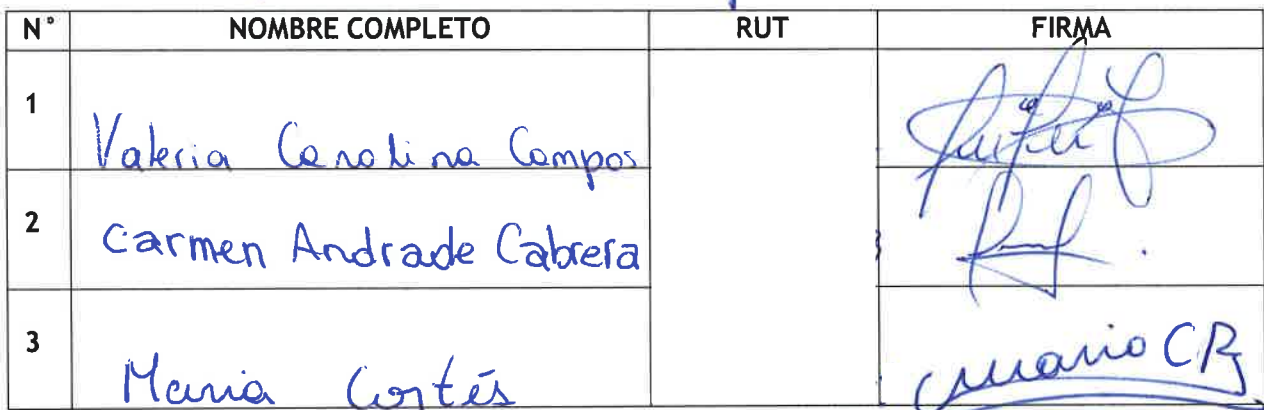 N° NOMBRE COMPLETO RUT FIRMA
1 Valeria Carolina Campos
2 Carmen Andrade Cabrera
3 Maria Cortés Mario CR